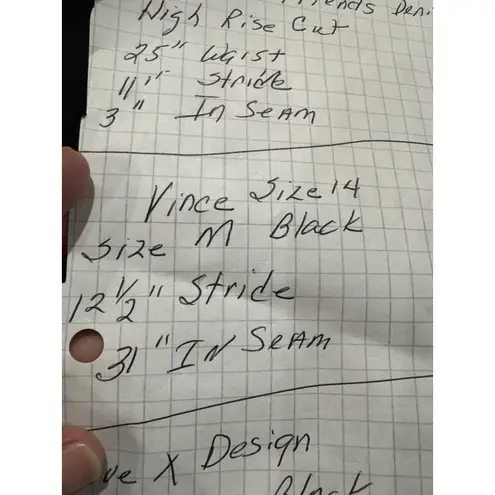 Friends Deni
High Rise Cut
25" Waist
11" Stride
3" In Seam
Vince Size 14
Size M Black
12 1/2" Stride
31" IN SEAM
ve X Design
Black